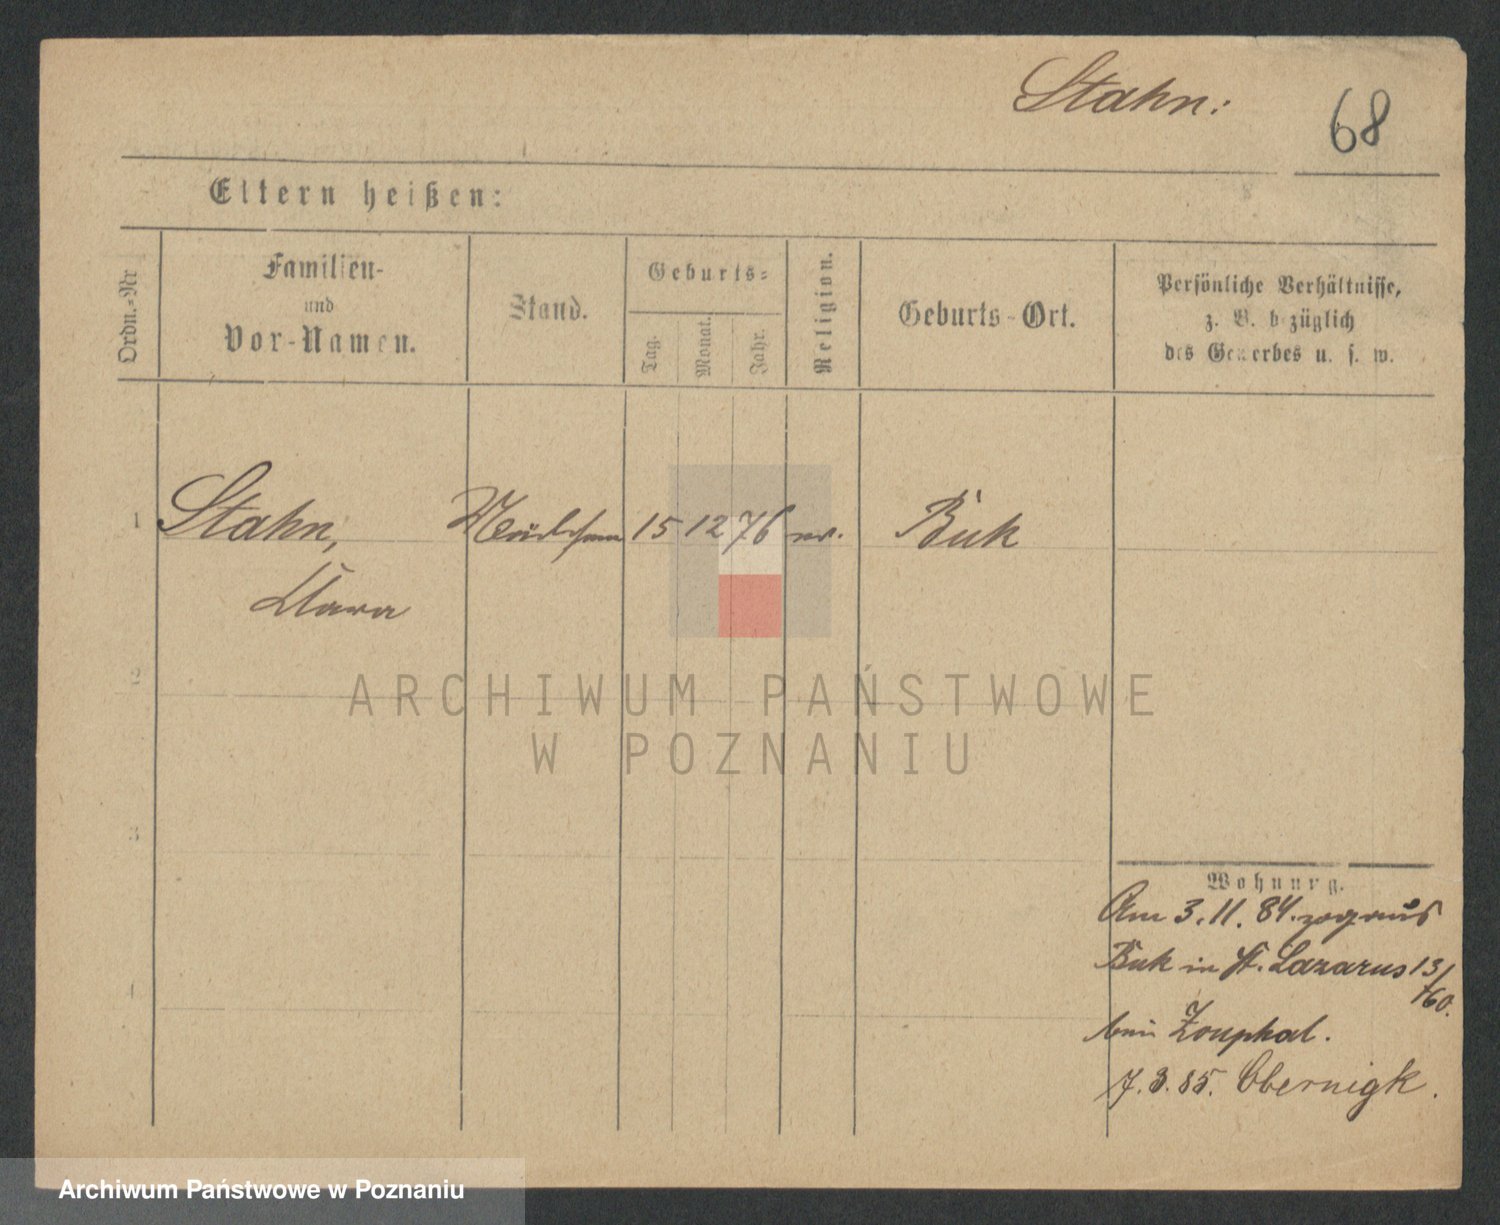 Stahn:
68
Eltern heißen:
Ordn.-Nr
Familien-
und
Vor-Namen.
Stand.
Geburts-
Tag.
Monat.
Jahr.
Religion.
Geburts-Ort.
Persönliche Verhältnisse,
z. B. bezüglich
des Gewerbes u. s. w.
1 Stahn, Mädchen 15 12 76 ev. Buk
Clara
2
3
4
Wohnung.
Am 3. 11. 84. zog aus
Buk in St. Lazarus 13/60.
bei
7. 3. 85. Obernigk.
ARCHIWUM PAŃSTWOWE
W POZNANIU
Archiwum Państwowe w Poznaniu